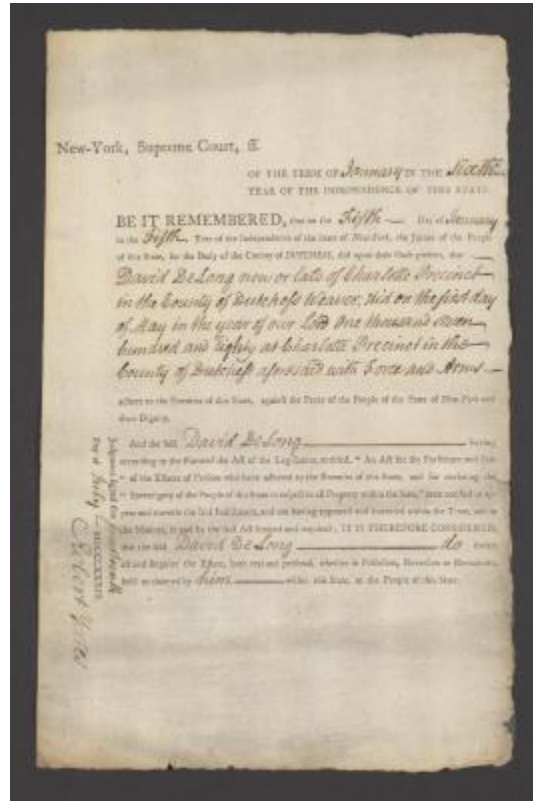 New-York, Supreme Court, ſſ.
OF THE TERM OF January IN THE Sixth
YEAR OF THE INDEPENDENCE OF THIS STATE.
BE IT REMEMBERED, that on the Fifth Day of January
in the Fifth Year of the Independence of the State of New-York, the Jurors of the People
of this State, for the Body of the County of DUTCHESS, did upon their Oath present, that
David De Long now or late of Charlotte Precinct
in the County of Dutchess Weaver, did on the first day
of May in the year of our Lord One thousand seven
hundred and Eighty at Charlotte Precinct in the
County of Dutchess aforesaid with Force and Arms
adhere to the Enemies of this State, against the Peace of the People of the State of New-York and
their Dignity.
And the said David De Long having
according to the Form of the Act of the Legislature, entitled, "An Act for the Forfeiture and Sale
" of the Estates of Persons who have adhered to the Enemies of this State, and for declaring the
" Sovereignty of the People of this State in respect to all Property within the same,"
the Manner, in and by the said Act limited and required; IT IS THEREFORE CONSIDERED,
that the said David De Long do forfeit
all and singular the Estate, both real and personal, whether in Possession, Reversion or Remainder,
held or claimed by him within this State, to the People of this State.
Judgment signed the
Day of July MDCCLXXXIII